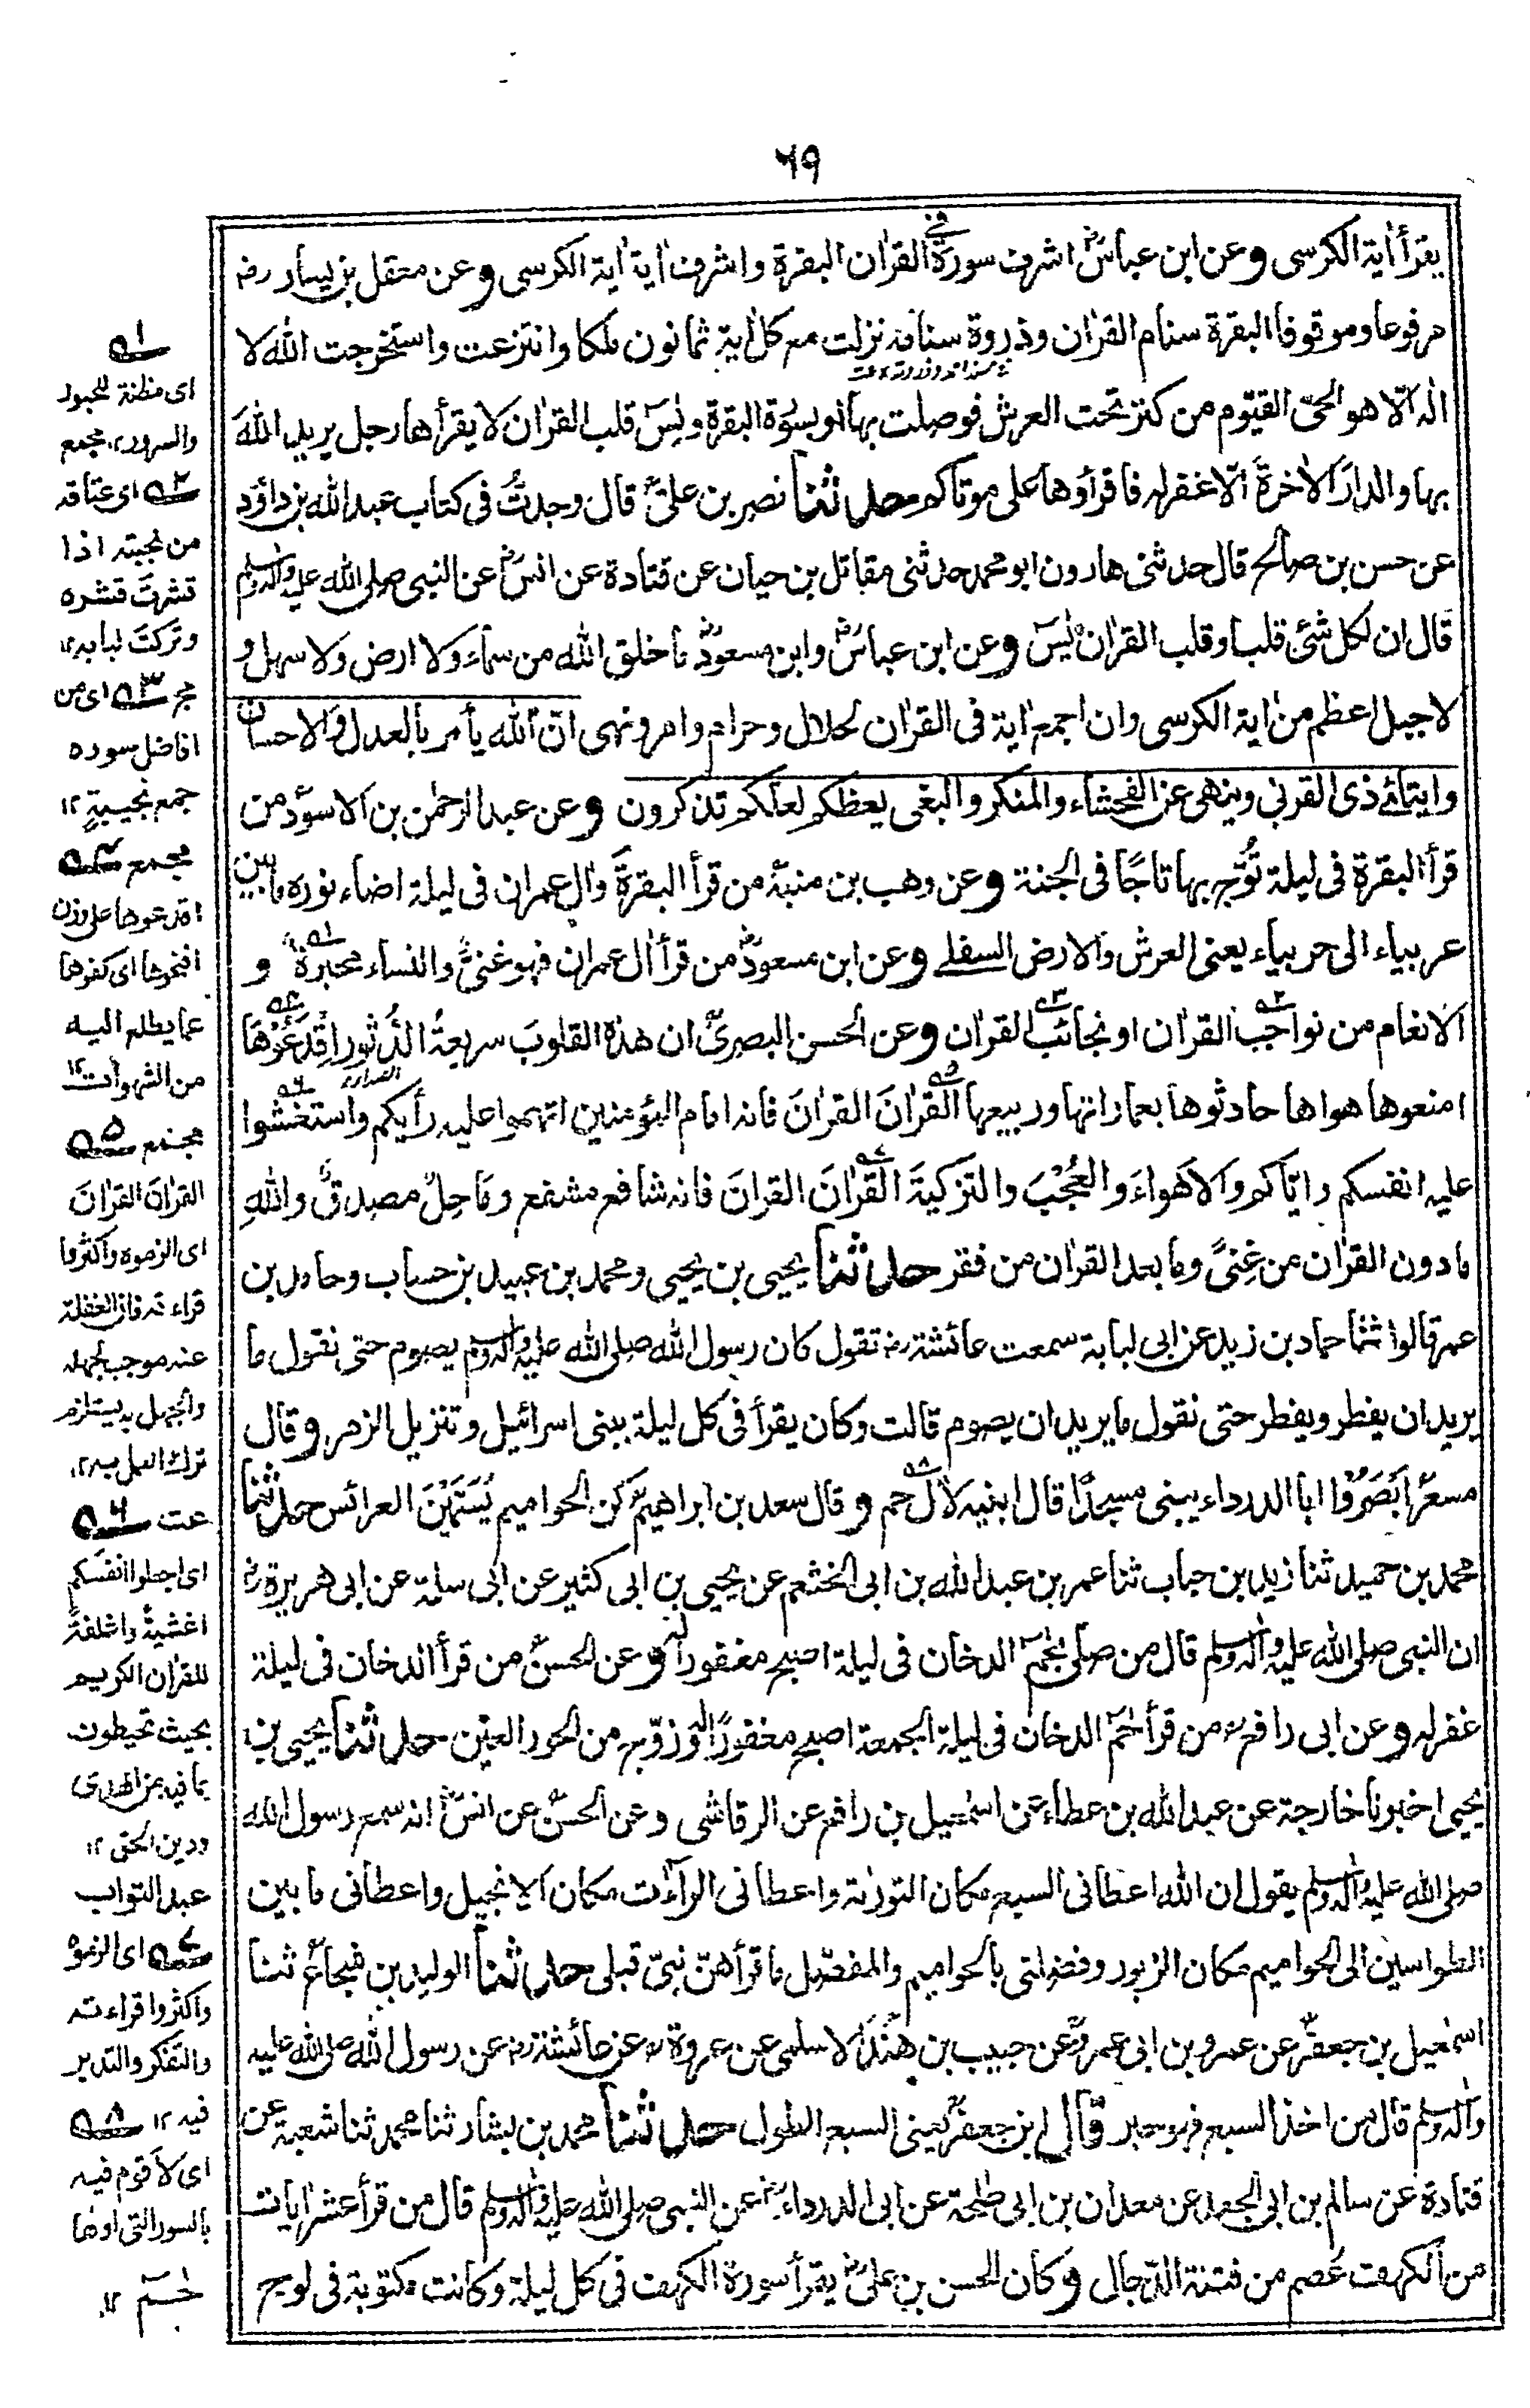 ٦٩
يقرأ اٰية الكرسى وعن ابن عباسؓ اشرف سورة فى القراٰن البقرة واشرف اٰية اٰية الكرسى وعن معقل بن يسار رض
مرفوعا وموقوفا البقرة سنام القراٰن وذروة سنامه نزلت مع كل اٰية ثمانون ملكا وانتزعت واستخرجت الله لا
اله الّا هو الحىّ القيّوم من كنز تحت العرش فوصلت بها او بسورة البقرة ويٰسٓ قلب القراٰن لا يقرأها رجل يريد اللهَ
بها والدارَ الاٰخرةَ الّا غفر له فاقرأوها على موتاكم حدثنا نصر بن علىؒ قال وجدتُ فى كتاب عبد الله بن داؤد
عن حسن بن صالح قال حدثنى هارون ابو محمد حدثنى مقاتل بن حيان عن قتادة عن انسؓ عن النبى صلى الله عليه واٰله وسلم
قال ان لكل شئ قلبا وقلب القراٰن يٰسٓ وعن ابن عباسؓ وابن مسعودؓ ما خلق الله من سماء ولا ارض ولا سهل و
لا جبل اعظم من اٰية الكرسى وان اجمع اٰية فى القراٰن لحلال وحرام وامر ونهى انّ الله يأمر بالعدل والاحسان
وايتائ ذى القربى وينهى عن الفحشاء والمنكر والبغى يعظكم لعلكم تذكرون وعن عبد الرحمٰن بن الاسودؒ من
قرأ البقرة فى ليلة تُوّج بها تاجًا فى الجنة وعن وهب بن منبهؒ من قرأ البقرة واٰل عمران فى ليلة اضاء نوره ما بين
عريباء الى جريباء يعنى العرش والارض السفلى وعن ابن مسعودؓ من قرأ اٰل عمران فهو غنىٌّ والنساء محبرةٌ و
الانعام من نواجب القراٰن او نجائب القراٰن وعن الحسن البصرىؒ ان هذه القلوبَ سريعةُ الدُّثور اقدَعُوْهَا
امنعوها هواها حادثوها بعمارانها وربيعها القراٰنَ القراٰنَ فانه امام المؤمنين اتهموا عليه رأيكم واستغشوا
عليه انفسكم واياكم والاهواءَ والعُجْبَ والتزكيةَ القراٰنَ القراٰنَ فانه شافع مشفع ومَاحِلٌ مصدقٌ واللهِ
ما دون القراٰن من غِنىً وما بعد القراٰن من فقر حدثنا يحيى بن يحيى ومحمد بن عبيد بن حساب وحامد بن
عمر قالوا ثنا حماد بن زيد عن ابى لبابة سمعت عائشة رض تقول كان رسول الله صلى الله عليه واٰله وسلم يصوم حتى نقول ما
يريد ان يفطر ويفطر حتى نقول ما يريد ان يصوم قالت وكان يقرأ فى كل ليلة ببنى اسرائيل وتنزيل الزمر وقال
مسعرؒ اَبْصَرُوْا ابا الدرداء يبنى مسجدًا قال ابنيه لاٰل حم وقال سعد بن ابراهيمؒ كن الحواميم يُسَمَّيْنَ العرائس حدثنا
محمد بن حميد ثنا زيد بن حباب ثنا عمر بن عبد الله بن ابى الخثعم عن يحيى بن ابى كثير عن ابى سلمة عن ابى هريرة رض
ان النبى صلى الله عليه واٰله وسلم قال من صلى بحٰمٓ الدخان فى ليلة اصبح مغفورا له وعن الحسنؒ من قرأ الدخان فى ليلة
غفر له وعن ابى رافعؒ من قرأ حٰمٓ الدخان فى ليلة الجمعة اصبح مغفورًا له وزوّج من الحور العين حدثنا يحيى بن
يحيى اخبرنا خارجة عن عبد الله بن عطاء عن اسمٰعيل بن رافع عن الرقاشى وعن الحسنؒ عن انسؓ انه سمع رسول الله
صلى الله عليه واٰله وسلم يقول ان الله اعطانى السبع مكان التورٰىة واعطانى الراٰءٰت مكان الانجيل واعطانى ما بين
الطواسين الى الحواميم مكان الزبور وفضلنى بالحواميم والمفصّل ما قرأهنّ نبىّ قبلى حدثنا الوليد بن شجاعؒ ثنا
اسمٰعيل بن جعفرؒ عن عمرو بن ابى عمروؒ عن حبيب بن هند الاسلمى عن عروة عن عائشة رض عن رسول الله صلى الله عليه
واٰله وسلم قال من اخذ السبع فهو حبر قال ابن جعفرؒ يعنى السبع الطول حدثنا محمد بن بشار ثنا محمد ثنا شعبة عن
قتادة عن سالم بن ابى الجعد عن معدان بن ابى طلحة عن ابى الدرداءؓ عن النبى صلى الله عليه واٰله وسلم قال من قرأ عشر اٰيات
من الكهف عُصم من فتنة الدّجال وكان الحسن بن علىؓ يقرأ سورة الكهف فى كل ليلة وكانت مكتوبة فى لوح
١ه
اى مظنة للحبور
والسرور ١٢ مجمع
٢ه اى عتاقه
من نجبته اذا
قشرتَ قشره
وتركتَ لبابه ١٢
مجمع ٣ه اى من
افاضل سوره
جمع نجيبةٍ ١٢
مجمع ٤ه
اقدعوها على وزن
افتحوها اى كفوها
عما يطلع اليه
من الشهوات ١٢
مجمع ٥ه
القراٰنَ القراٰنَ
اى الزموه واكثروا
قراءته فان الغفلة
عنه موجب لجهله
والجهل به يستلزم
ترك العمل به ١٢
عت ٦ه
اى اجعلوا انفسكم
اغشيةً واغلفةً
للقراٰن الكريم
بحيث تحيطون
بما فيه من الهدى
ودين الحق ١٢
عبد التواب
٧ه اى الزموه
واكثروا قراءته
والتفكر والتدبر
فيه ١٢ ٨ه
اى لاقوم فيه
بالسور التى اولها
حٰمٓ ١٢